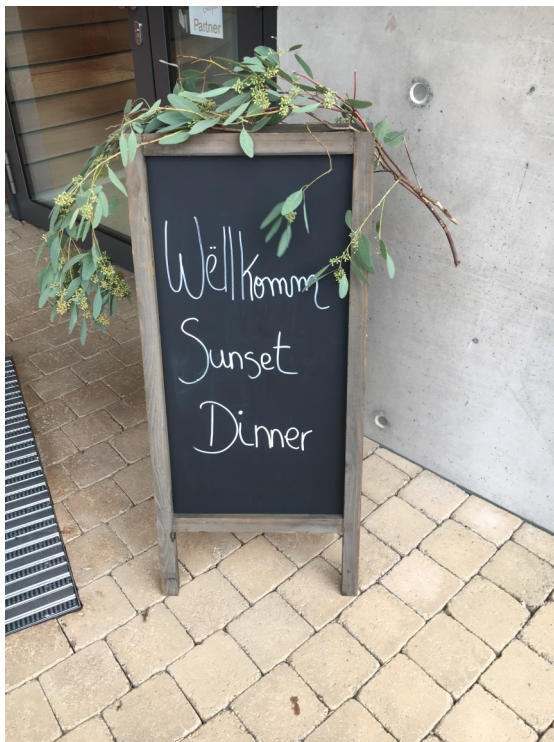 Partner
Wëllkomm
Sunset
Dinner